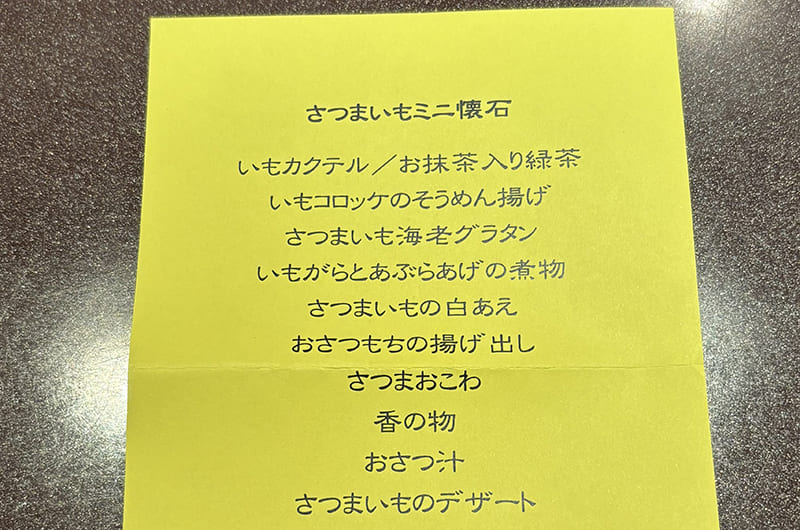 さつまいもミニ懐石
いもカクテル／お抹茶入り緑茶
いもコロッケのそうめん揚げ
さつまいも海老グラタン
いもがらとあぶらあげの煮物
さつまいもの白あえ
おさつもちの揚げ出し
さつまおこわ
香の物
おさつ汁
さつまいものデザート